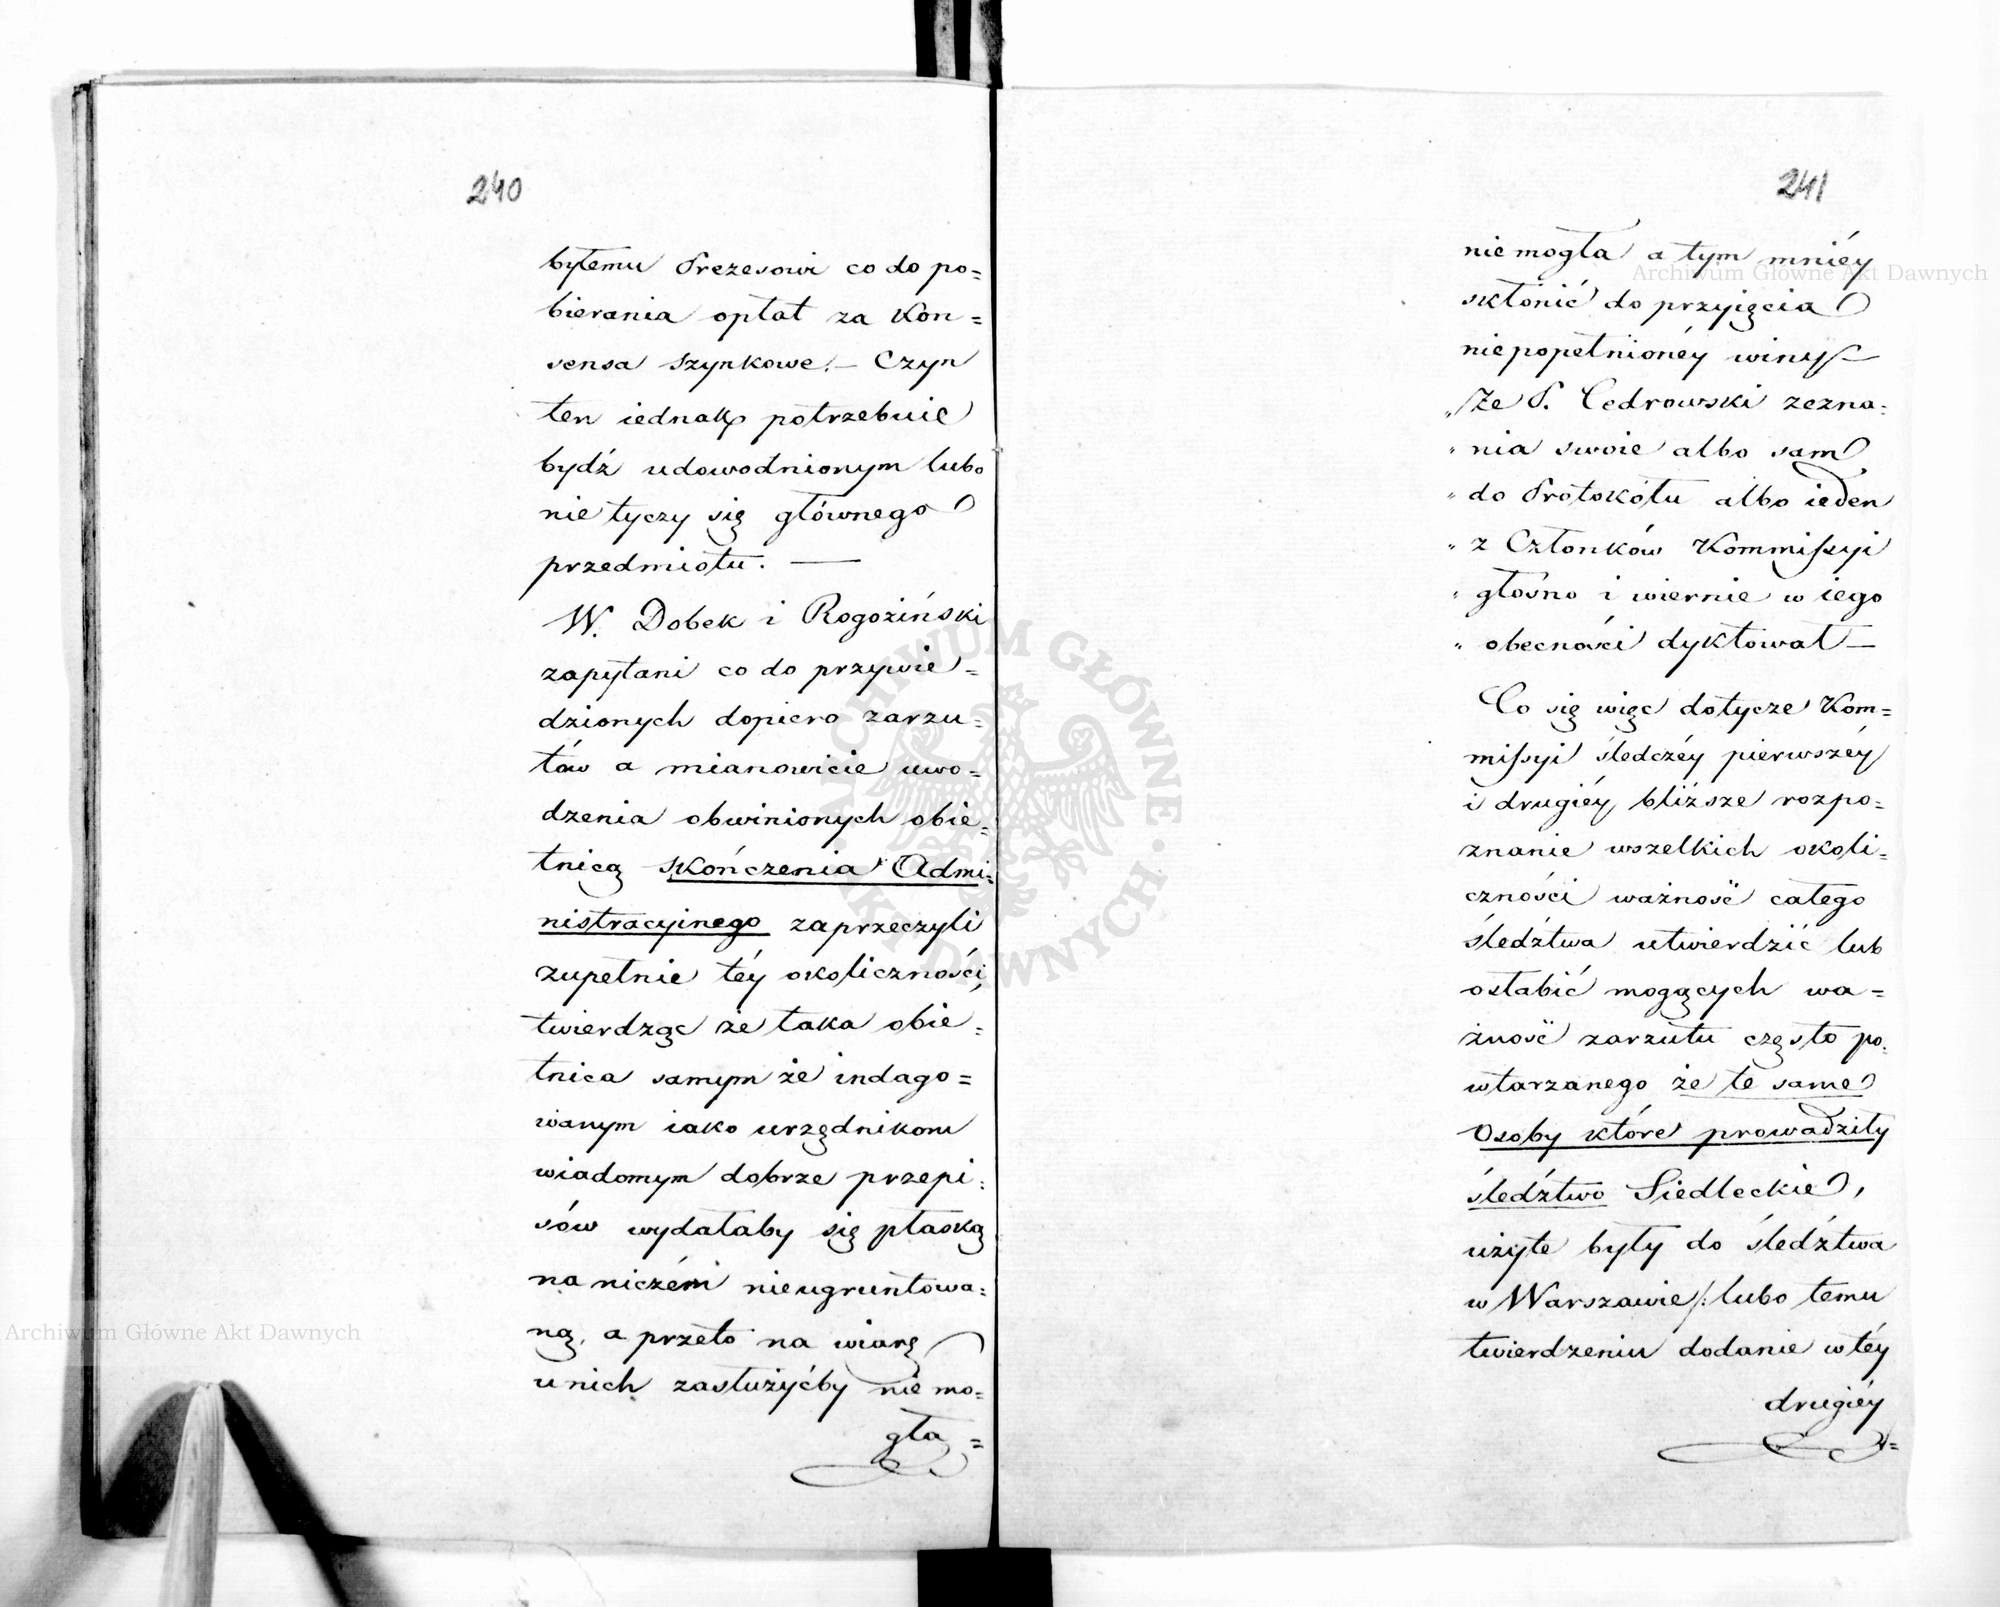 240
byłemu Prezesowi co do po=
bierania opłat za Kon=
sensa Szynkowe.— Czyn
ten iednak potrzebuie
bydź udowodnionym lubo
nie tyczy się głównego
przedmiotu. —
W. Dobek i Rogoziński
zapytani co do przywie=
dzionych dopiero zarzu=
tów a mianowicie uwo=
dzenia obwinionych obie=
tnicą skończenia Admi=
nistracyinego zaprzeczyli
zupełnie téy okoliczności,
twierdząc że taka obie=
tnica samym że indago=
wanym iako urzędnikom
wiadomym dobrze przepi=
sów wydałaby się płaską
na niczém nieugruntowa=
ną, a przeto na wiarę
u nich zasłużyćby nie mo=
gła =
241
nie mogła a tym mniéy
skłonić do przyięcia
niepopełnionéy winy
„ Że P. Cedrowski zezna=
„ nia swoie albo sam
„ do Protokółu albo ieden
„ z Członków Kommissyi
„ głośno i wiernie w iego
„ obecności dyktował —
Co się więc dotycze Kom=
missyi śledczéy pierwszéy
i drugiéy bliższe rozpo=
znanie wszelkich okoli=
czności ważność całego
śledztwa utwierdzić lub
osłabić mogących wa=
żność zarzutu często po=
wtarzanego że te same
Osoby które prowadziły
śledztwo Siedleckie,
użyte były do śledztwa
w Warszawie /: lubo temu
twierdzeniu dodanie w téy
drugiéy
Archiwum Główne Akt Dawnych
Archiwum Główne Akt Dawnych
ARCHIWUM GŁÓWNE · AKT DAWNYCH ·